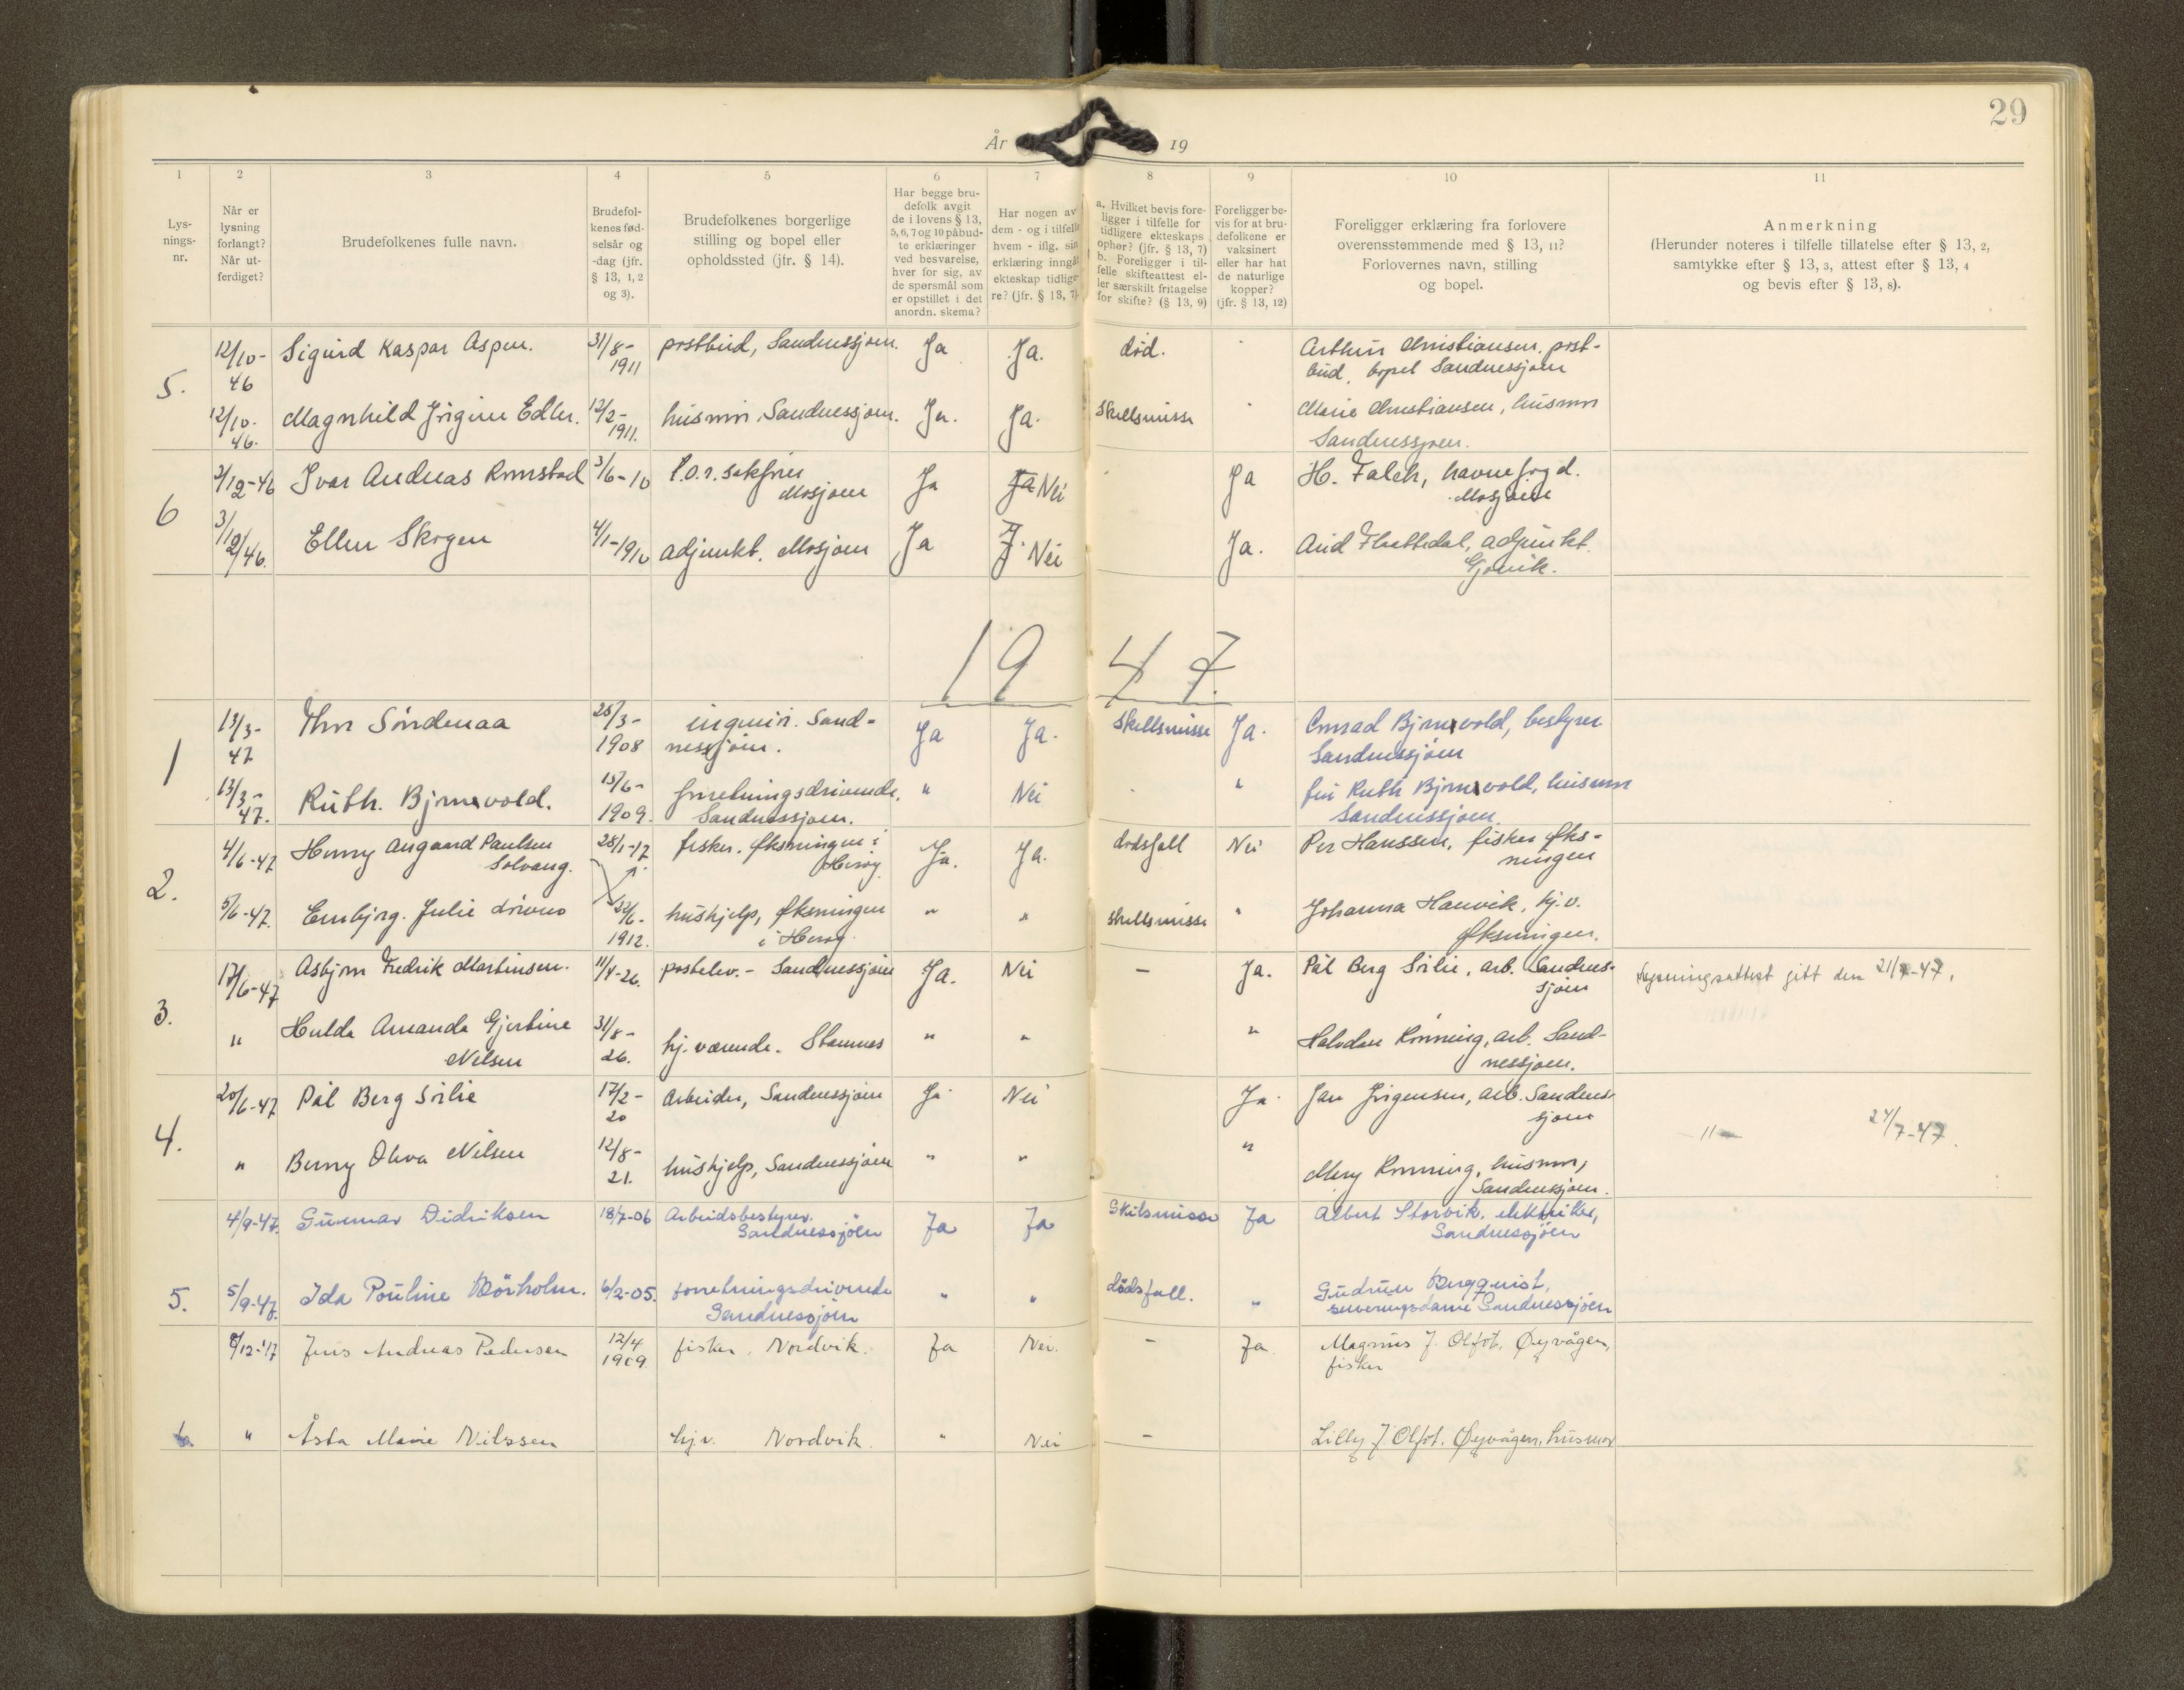 29
År 19
1 2 3 4 5 6 7 8 9 10 11
Lys-
nings-
nr.
Når er
lysning
forlangt?
Når ut-
ferdiget?
Brudefolkenes fulle navn.
Brudefol-
kenes fød-
selsår og
-dag (jfr.
§ 13, 1, 2
og 3).
Brudefolkenes borgerlige
stilling og bopel eller
opholdssted (jfr. § 14).
Har begge bru-
defolk avgit
de i lovens § 13,
5, 6, 7 og 10 påbud-
te erklæringer
ved besvarelse,
hver for sig, av
de spørsmål som
er opstillet i det
anordn. skema?
Har nogen av
dem - og i tilfelle
hvem - iflg. sin
erklæring inngåt
ekteskap tidlige-
re? (jfr. § 13, 7)
a. Hvilket bevis fore-
ligger i tilfelle for
tidligere ekteskaps
ophør? (jfr. § 13, 7)
b. Foreligger i til-
felle skifteattest el-
ler særskilt fritagelse
for skifte? (§ 13, 9)
Foreligger be-
vis for at bru-
defolkene er
vaksinert
eller har hat
de naturlige
kopper?
(jfr. § 13, 12)
Foreligger erklæring fra forlovere
overensstemmende med § 13, 11?
Forlovernes navn, stilling
og bopel.
Anmerkning
(Herunder noteres i tilfelle tillatelse efter § 13, 2,
samtykke efter § 13, 3, attest efter § 13, 4
og bevis efter § 13, 8).
5.
12/10-46 Sigurd Kaspar Aspen. 31/8-1911 postbud, Sandnessjøen. Ja Ja. død. Arthur Christiansen, post-
bud, bopel Sandnessjøen
12/10-46. Magnhild Jørgine Edler. 12/2-1911. husmor, Sandnessjøen. Ja. Ja. Skillsmisse Marie Christiansen, husmor
Sandnessjøen.
6
3/12-46 Ivar Andreas Romstad 3/6-10 o.r.sakfører Ja Ja Nei Ja H. Falch, havnefogd.
Mosjøen Mosjøen
3/12/46. Ellen Skogen 4/1-1910 adjunkt. Mosjøen Ja J. Nei Ja. Aud adjunkt.
Gjøvik.
1947.
1
13/3-47 Thor Søndenaa 25/3-1908 ingeniør. Sand-
nessjøen. Ja Ja. Skillsmisse Ja. Conrad Bjørnvold, bestyrer
Sandnessjøen
13/3-47. Ruth. Bjørnvold. 15/6-1909. forretningsdrivende. " Nei " fru Ruth Bjørnvold, husmor
Sandnessjøen. Sandnessjøen.
2.
4/6-47 Henry Angaard Paulsen 28/1-17 fisker. Øksningen i Ja. Ja. dødsfall Nei Per Hanssen, fisker Øks-
Solvang. Herøy. ningen
5/6-47. Embjørg. Julie 22/6-1912. hushjelp, Øksningen " " skillsmisse " Johanna Hanvik, hj.v.
i Herøy. Øksningen.
3.
17/6-47 Asbjørn Fredrik Martinsen. 11/4-26. postelev. - Sandnessjøen Ja. Nei - Ja. Pål Berg Sørlie, arb. Sandnes-
sjøen Lysningsattest gitt den 21/7-47.
" Hulda Amanda Gjertine 31/8-26. hj. værende. Stamnes " " " Halvdan Rønning, arb. Sand-
Nilsen nessjøen.
4.
20/6-47 Pål Berg Sørlie 17/2-20 Arbeider, Sandnessjøen Ja Nei Ja Jan Jørgensen, arb. Sandnes-
sjøen
" Benny Oliva Nilsen 12/8-21. hushjelp, Sandnessjøen " " " Mary Rønning, husmor,
Sandnessjøen.
-"- 24/7-47.
5.
4/9-47. Gunnar Didriksen 18/7-06 Arbeidsbestyrer. Ja Ja Skilsmisse Ja Albert Storvik, elektriker,
Sandnessjöen Sandnessjöen
5/9-47. Ida Pouline Börholm. 6/2-05. forretningsdrivende " " dödsfall. " Gudrun Bergquist,
Sandnessjöen serveringsdame Sandnessjöen
6.
8/12-47 Jens Andreas Pedersen 12/4 1909 fisker. Nordvik. Ja Nei. - Ja Magnus J. Olfot, Øyvågen,
fisker
" Åsta Marie Nilssen hj.v. Nordvik. " Nei - Lilly J Olfot. Øyvågen, husmor